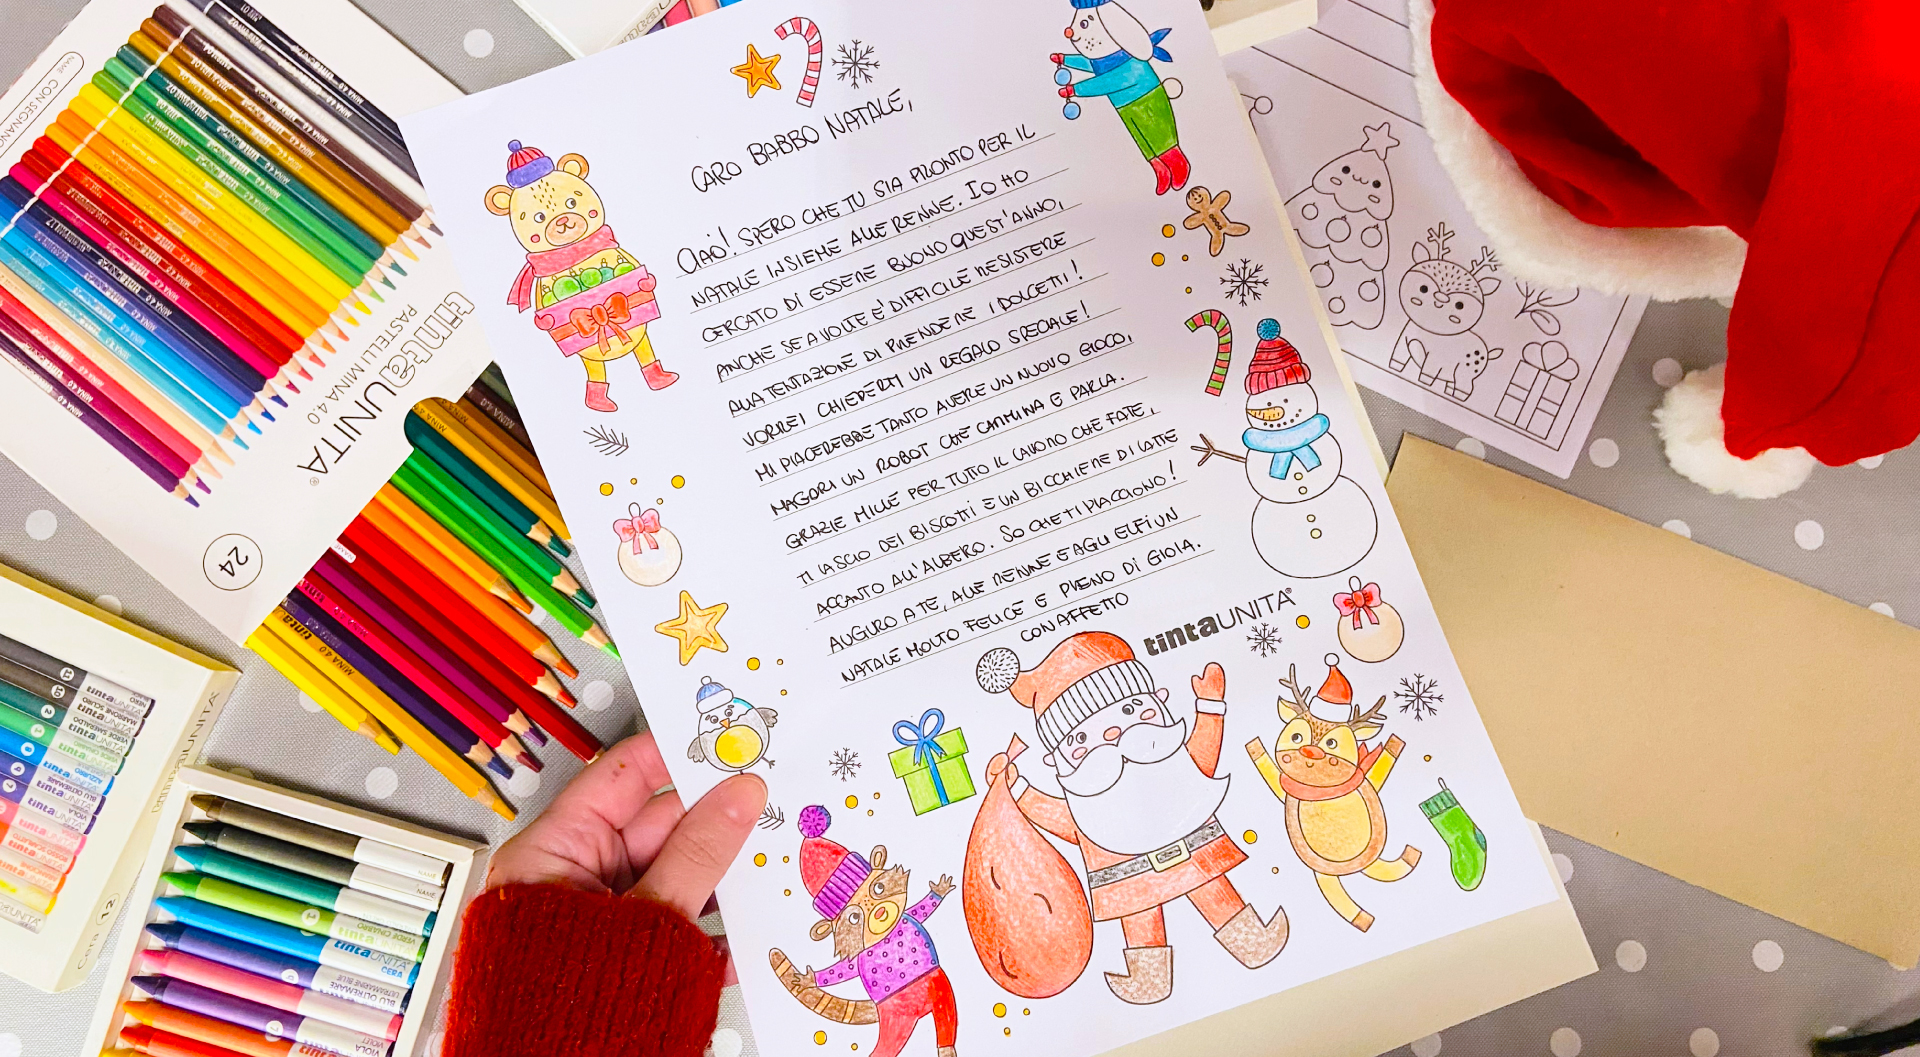 CARO BABBO NATALE,
CIAO! SPERO CHE TU SIA PRONTO PER IL
NATALE INSIEME ALLE RENNE. IO HO
CERCATO DI ESSERE BUONO QUEST'ANNO,
ANCHE SE A VOLTE E' DIFFICILE RESISTERE
ALLA TENTAZIONE DI PRENDERE I DOLCETTI!
VORREI CHIEDERTI UN REGALO SPECIALE!
MI PIACEREBBE TANTO AVERE UN NUOVO GIOCO,
MAGARI UN ROBOT CHE CAMMINA E PARLA.
GRAZIE MILLE PER TUTTO IL LAVORO CHE FATE,
TI LASCIO DEI BISCOTTI E UN BICCHIERE DI LATTE
ACCANTO ALL'ALBERO. SO CHE TI PIACCIONO!
AUGURO A TE, ALLE RENNE E AGLI ELFI UN
NATALE MOLTO FELICE E PIENO DI GIOIA.
CON AFFETTO
tintaUNITA®
tintaUNITA®
PASTELLI MINA 4.0
24
NAME
CON SEGNANO
Cera 12
VERDE CINABRO
tintaUNITA
CERA
BLU OLTREMARE
ULTRAMARINE BLUE
VIOLA
VIOLET